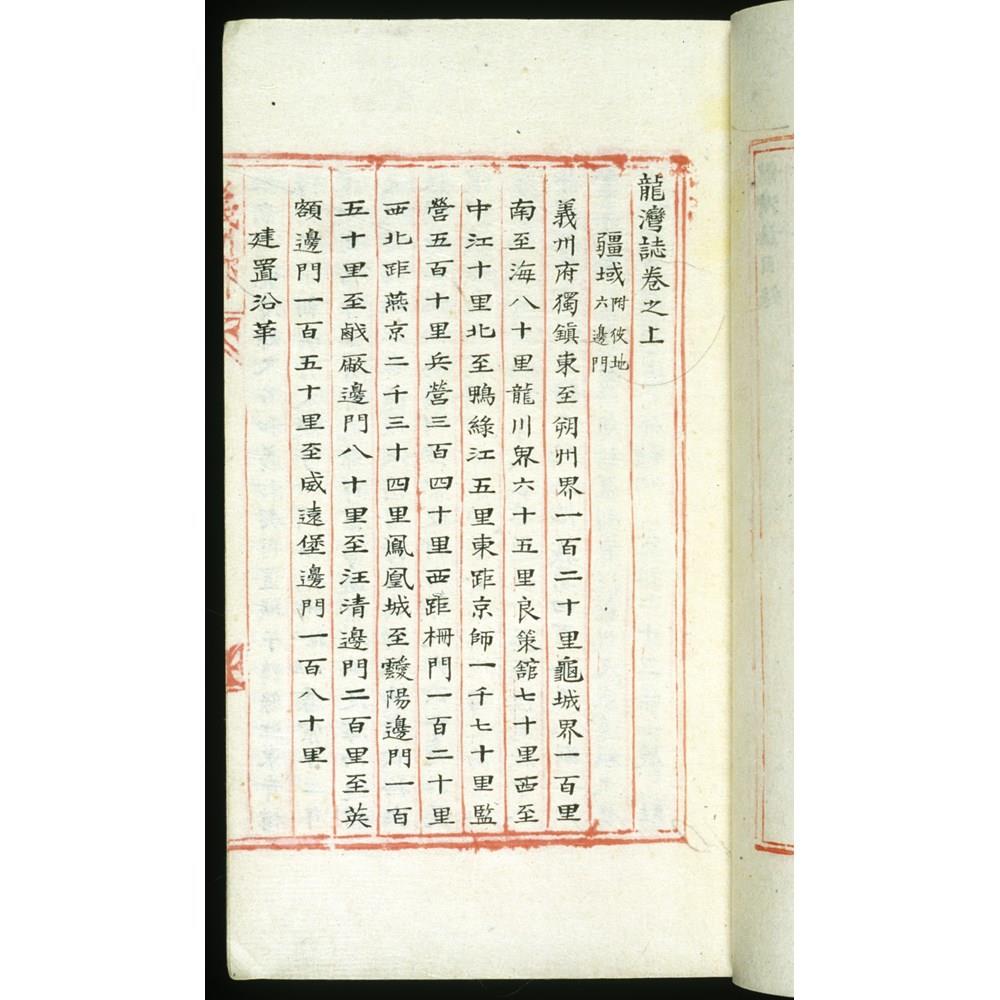 龍灣誌卷之上
疆域附彼地六邊門
義州府獨鎮東至朔州界一百二十里龜城界一百里
南至海八十里龍川界六十五里良策舘七十里西至
中江十里北至鴨綠江五里東距京師一千七十里監
營五百十里兵營三百四十里西距柵門一百二十里
西北距燕京二千三十四里鳳凰城至靉陽邊門一百
五十里至鹹厰邊門八十里至汪清邊門二百里至英
額邊門一百五十里至威遠堡邊門一百八十里
建置沿革